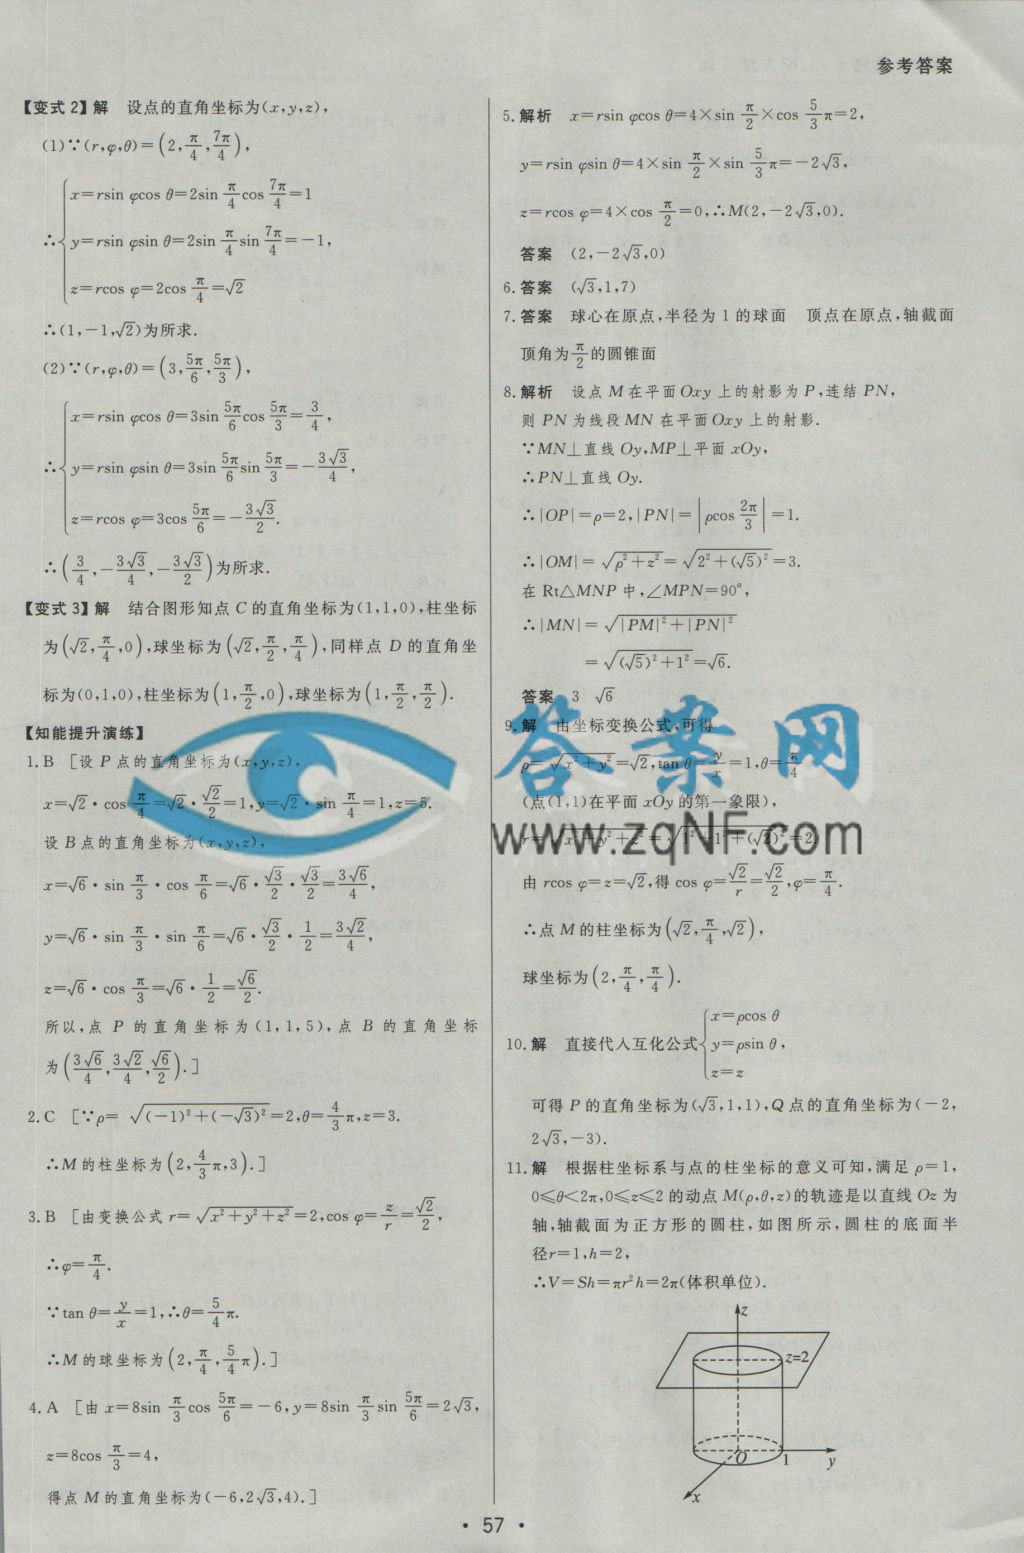 参考答案
【变式2】解 设点的直角坐标为(x,y,z),
(1)∵(r,φ,θ)=(2,π/4,7π/4),
x=rsin φcos θ=2sin π/4 cos 7π/4=1
∴{y=rsin φsin θ=2sin π/4 sin 7π/4=-1,
z=rcos φ=2cos π/4=√2
∴(1,-1,√2)为所求.
(2)∵(r,φ,θ)=(3,5π/6,5π/3),
x=rsin φcos θ=3sin 5π/6 cos 5π/3=3/4,
∴{y=rsin φsin θ=3sin 5π/6 sin 5π/3=-3√3/4,
z=rcos φ=3cos 5π/6=-3√3/2.
∴(3/4,-3√3/4,-3√3/2)为所求.
【变式3】解 结合图形知点C的直角坐标为(1,1,0),柱坐标
为(√2,π/4,0),球坐标为(√2,π/2,π/4),同样点D的直角坐
标为(0,1,0),柱坐标为(1,π/2,0),球坐标为(1,π/2,π/2).
【知能提升演练】
1.B [设P点的直角坐标为(x,y,z),
x=√2·cos π/4=√2·√2/2=1,y=√2·sin π/4=1,z=5.
设B点的直角坐标为(x,y,z),
x=√6·sin π/3·cos π/6=√6·√3/2·√3/2=3√6/4,
y=√6·sin π/3·sin π/6=√6·√3/2·1/2=3√2/4,
z=√6·cos π/3=√6·1/2=√6/2.
所以,点P的直角坐标为(1,1,5),点B的直角坐标
为(3√6/4,3√2/4,√6/2).]
2.C [∵ρ=√((-1)²+(-√3)²)=2,θ=4/3π,z=3.
∴M的柱坐标为(2,4/3π,3).]
3.B [由变换公式r=√(x²+y²+z²)=2,cos φ=z/r=√2/2,
∴φ=π/4.
∵tan θ=y/x=1,∴θ=5/4π.
∴M的球坐标为(2,π/4,5/4π).]
4.A [由x=8sin π/3 cos 5π/6=-6,y=8sin π/3 sin 5π/6=2√3,
z=8cos π/3=4,
得点M的直角坐标为(-6,2√3,4).]
5.解析 x=rsin φcos θ=4×sin π/2×cos 5/3π=2,
y=rsin φsin θ=4×sin π/2×sin 5/3π=-2√3,
z=rcos φ=4×cos π/2=0,∴M(2,-2√3,0).
答案 (2,-2√3,0)
6.答案 (√3,1,7)
7.答案 球心在原点,半径为1的球面 顶点在原点,轴截面
顶角为π/2的圆锥面
8.解析 设点M在平面Oxy上的射影为P,连结PN,
则PN为线段MN在平面Oxy上的射影.
∵MN⊥直线Oy,MP⊥平面xOy,
∴PN⊥直线Oy.
∴|OP|=ρ=2,|PN|=|ρcos 2π/3|=1.
∴|OM|=√(ρ²+z²)=√(2²+(√5)²)=3.
在Rt△MNP中,∠MPN=90°,
∴|MN|=√(|PM|²+|PN|²)
=√((√5)²+1²)=√6.
答案 3 √6
9.解 由坐标变换公式,可得
ρ=√(x²+y²)=√2,tan θ=y/x=1,θ=π/4
(点(1,1)在平面xOy的第一象限),
r=√(x²+y²+z²)=√(1²+1²+(√2)²)=2
由rcos φ=z=√2,得cos φ=√2/r=√2/2,φ=π/4.
∴点M的柱坐标为(√2,π/4,√2),
球坐标为(2,π/4,π/4).
x=ρcos θ
10.解 直接代人互化公式{y=ρsin θ,
z=z
可得P的直角坐标为(√3,1,1),Q点的直角坐标为(-2,
2√3,-3).
11.解 根据柱坐标系与点的柱坐标的意义可知,满足ρ=1,
0≤θ<2π,0≤z≤2的动点M(ρ,θ,z)的轨迹是以直线Oz为
轴,轴截面为正方形的圆柱,如图所示,圆柱的底面半
径r=1,h=2,
∴V=Sh=πr²h=2π(体积单位).
z
z=2
O 1 y
x
答案网
www.zqNF.com
• 57 •